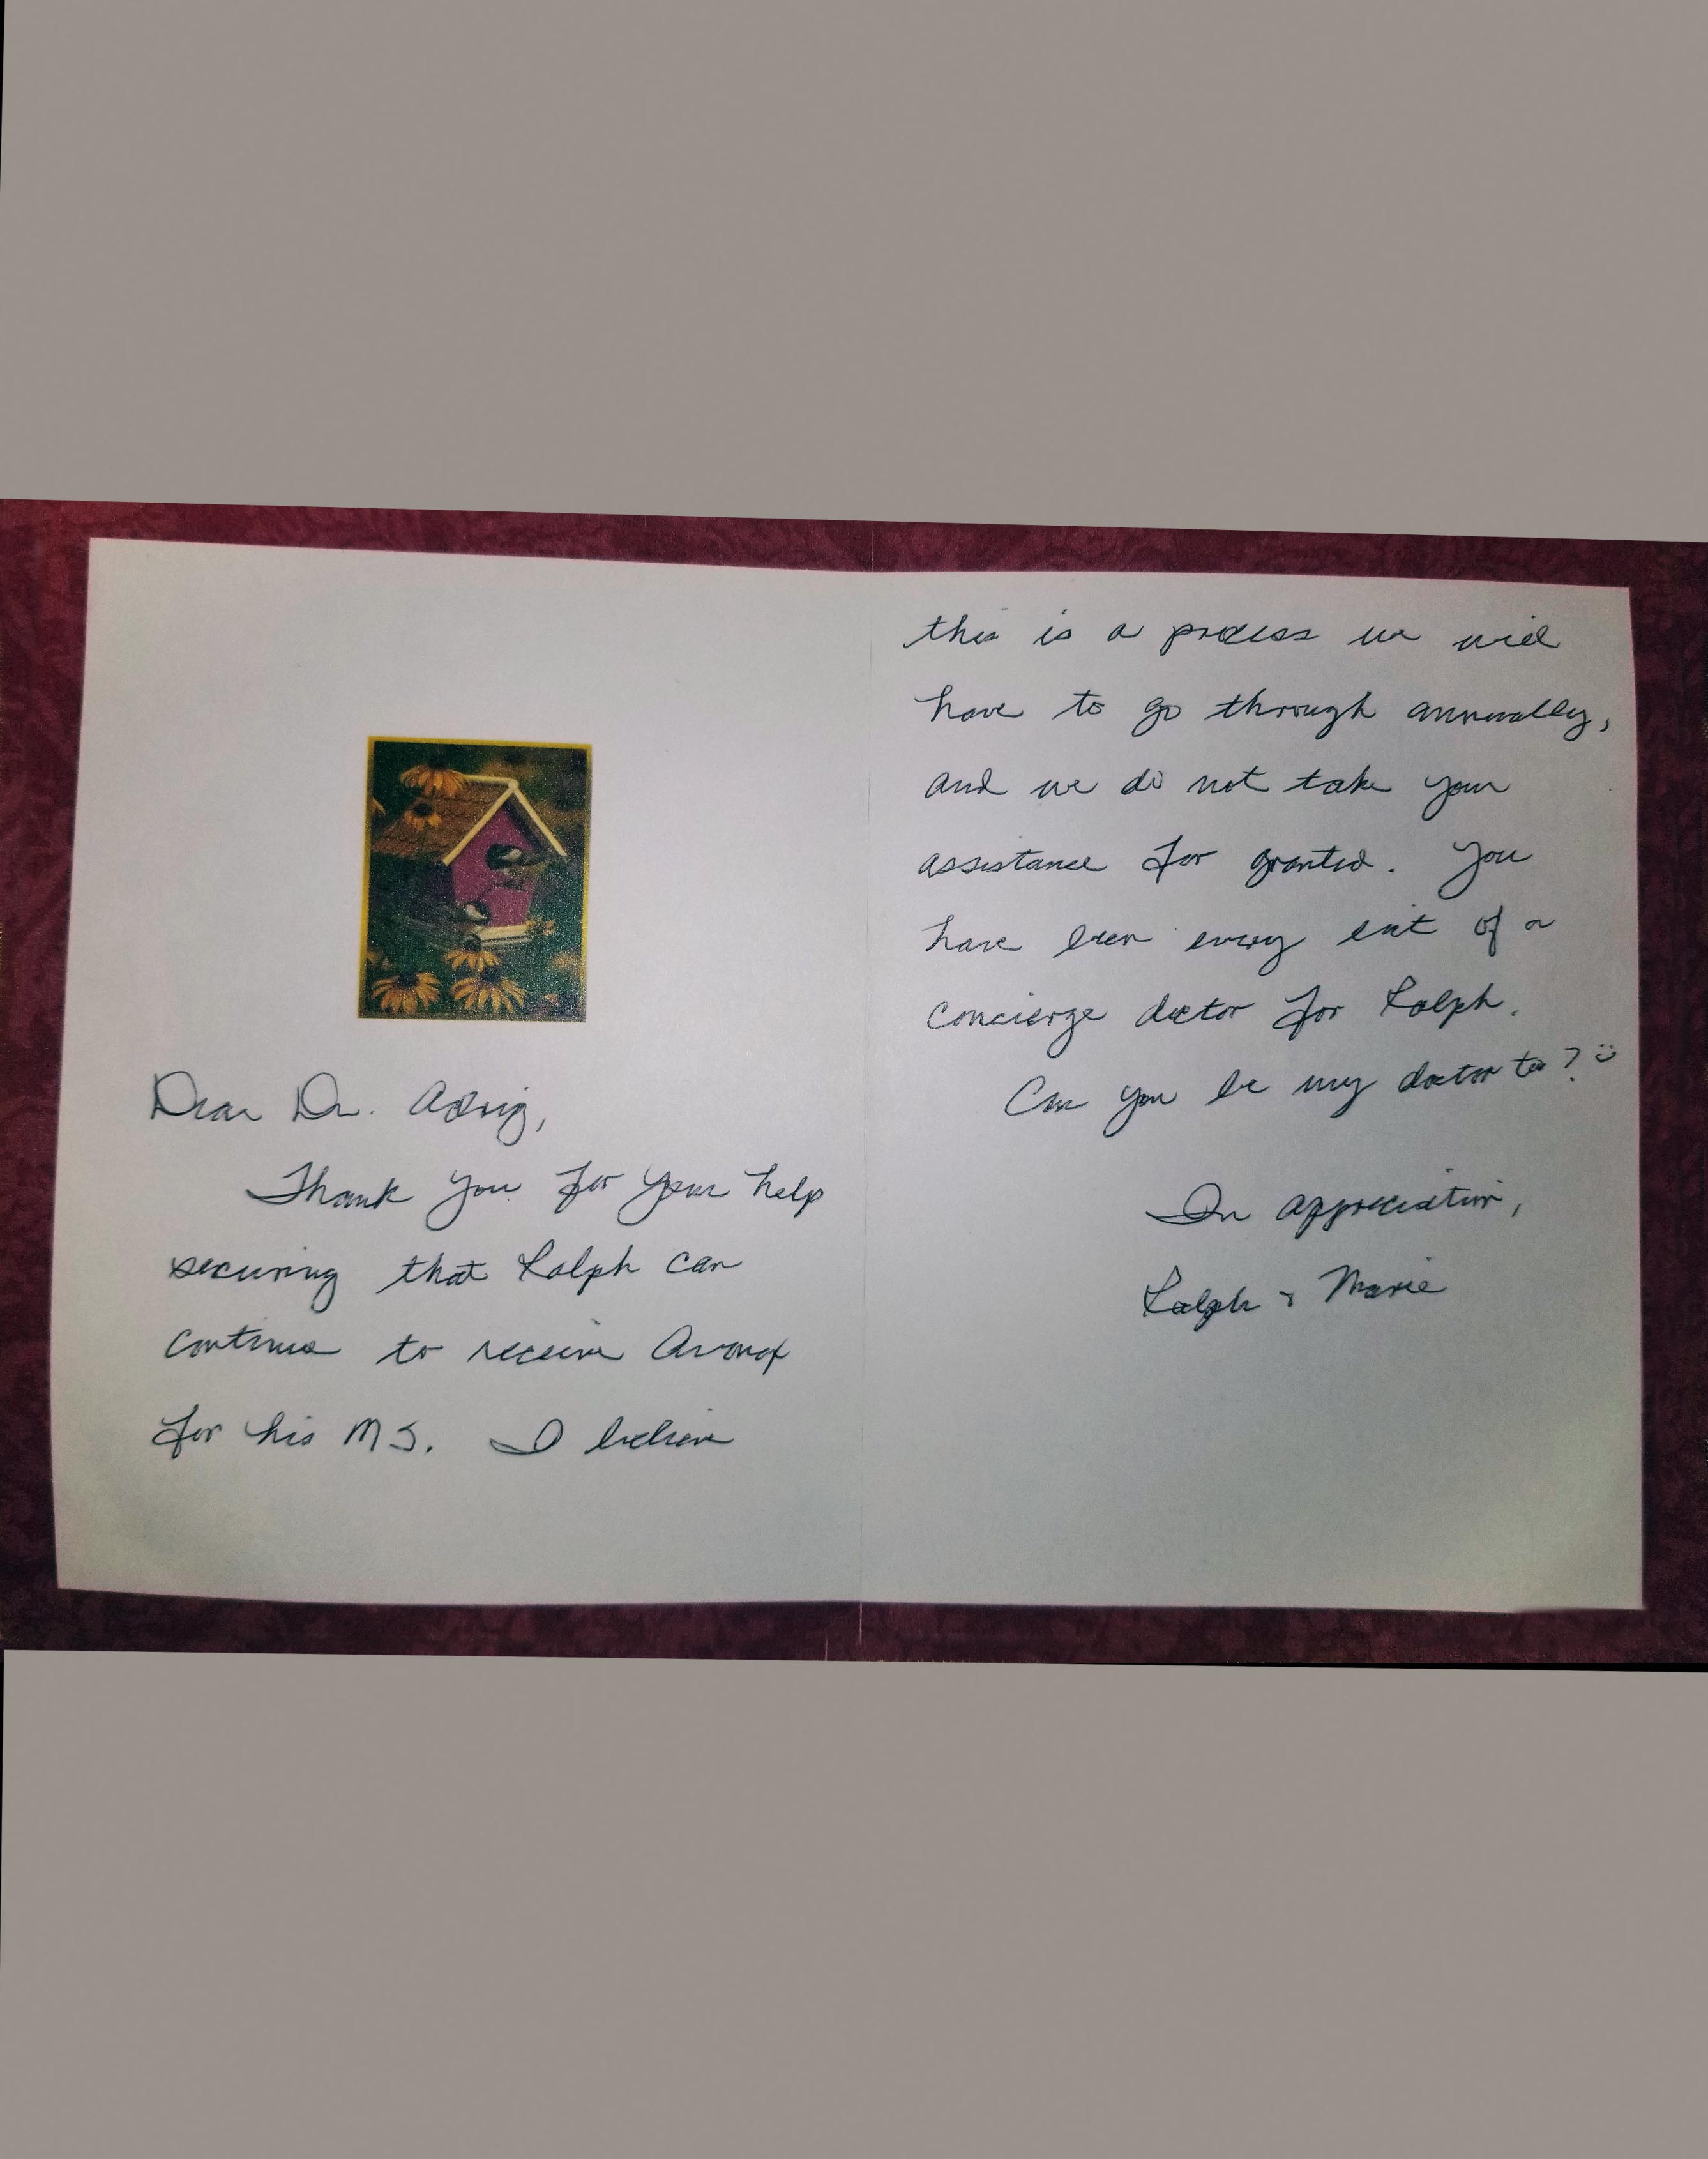 Dear Dr.
Thank you for your help
securing that Ralph can
continue to receive Avonex
for his MS. I believe
this is a process we will
have to go through annually,
and we do not take your
assistance for granted. You
have been every bit of a
concierge doctor for Ralph.
Can you be my doctor too? ☺
In appreciation,
Ralph & Marie